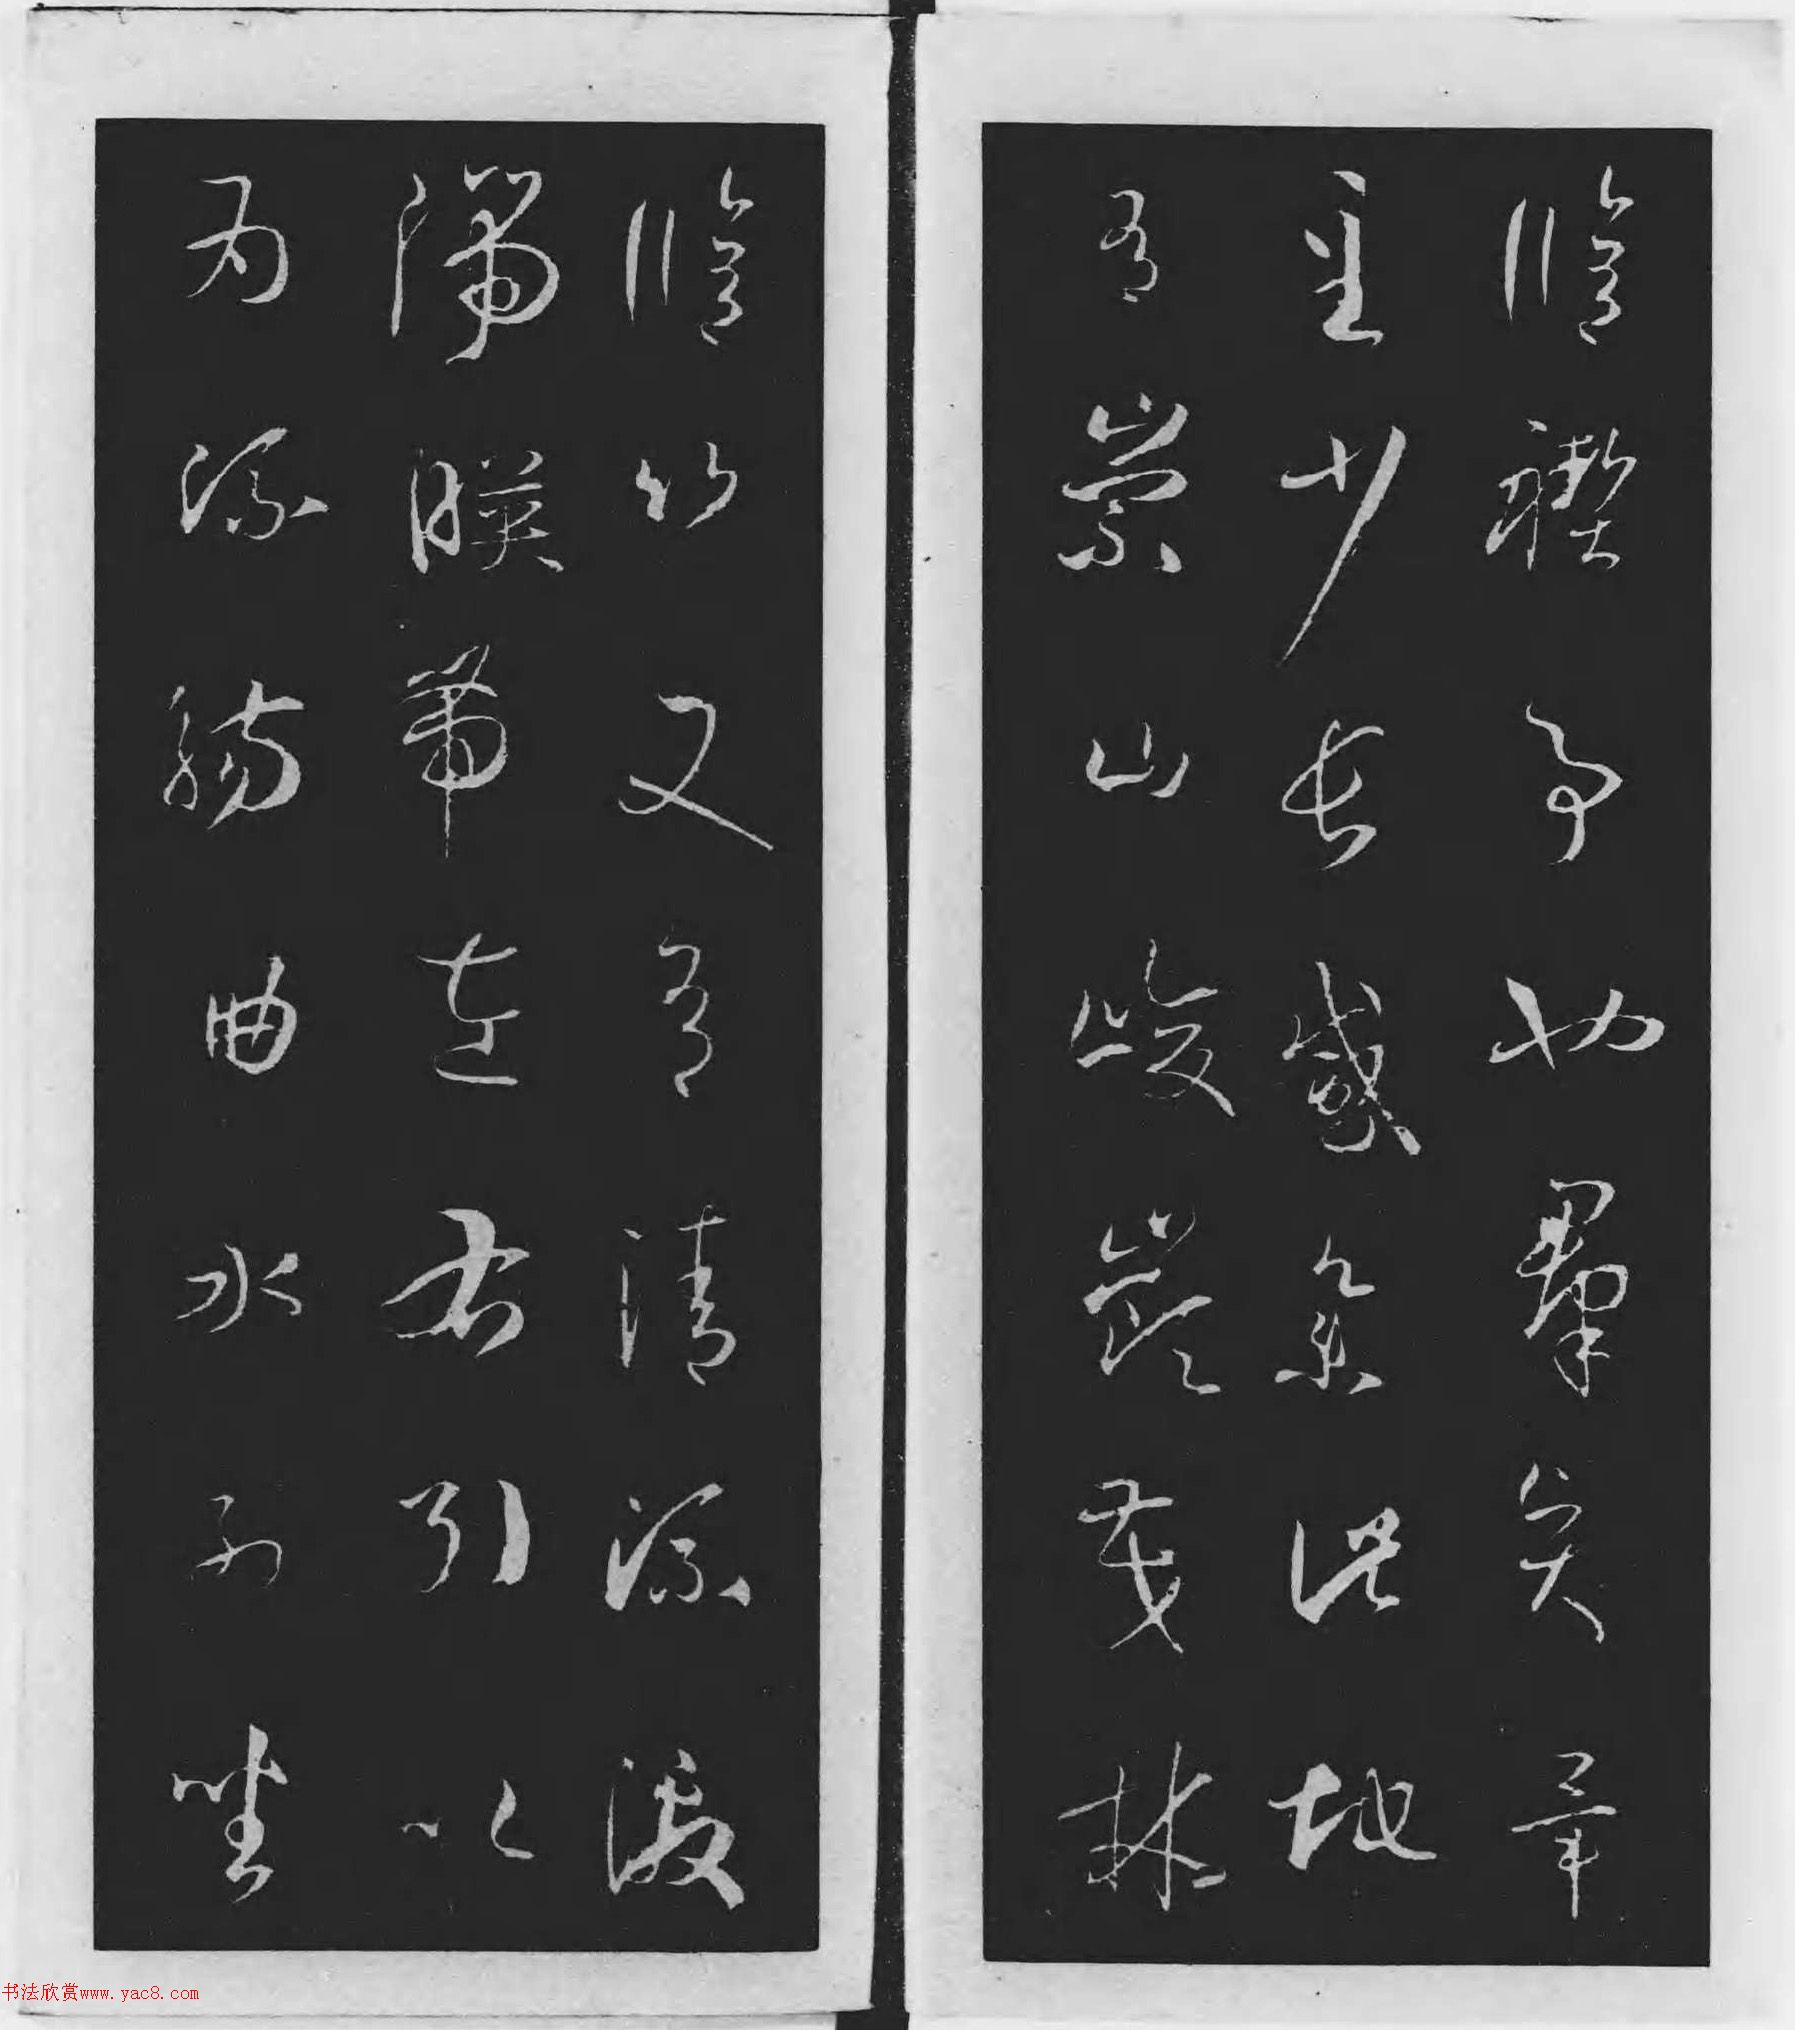 脩禊事也群賢畢
至少長咸集此地
有崇山峻嶺茂林
脩竹又有清流激
湍暎帶左右引以
為流觴曲水列坐
书法欣赏www.yac8.com